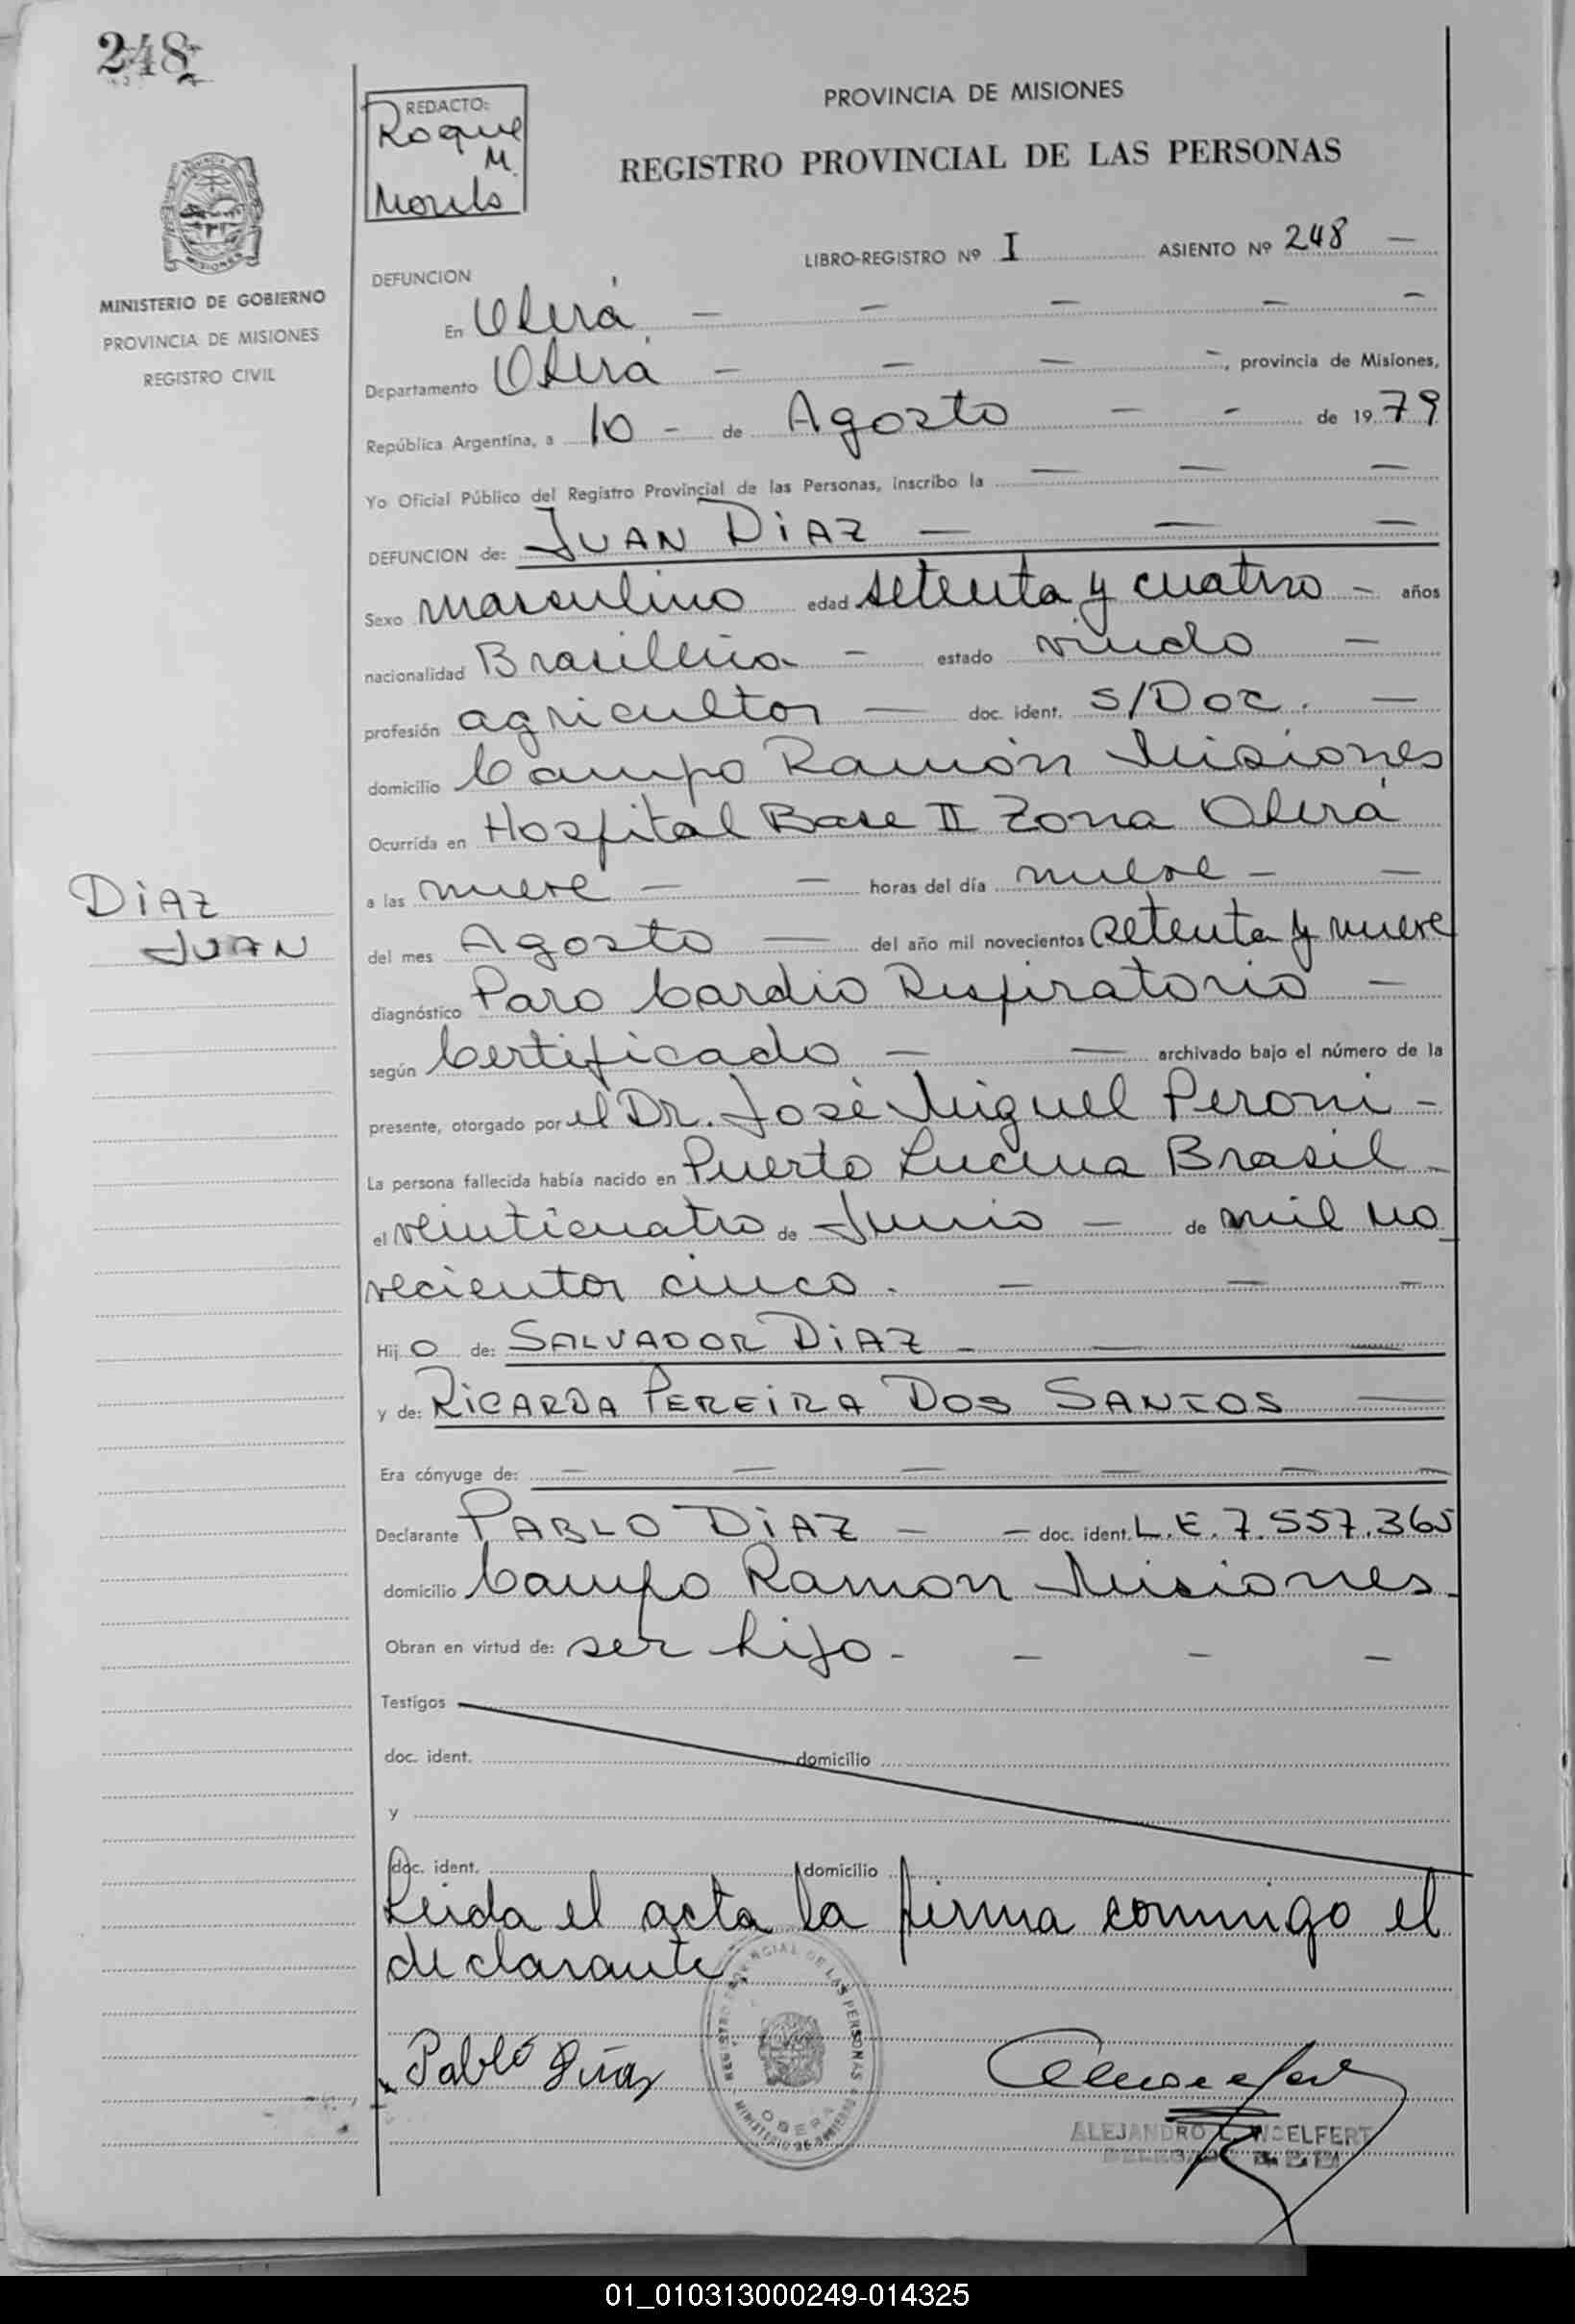 248
REDACTO:
Roque
M.
PROVINCIA DE MISIONES
REGISTRO PROVINCIAL DE LAS PERSONAS
MINISTERIO DE GOBIERNO
PROVINCIA DE MISIONES
REGISTRO CIVIL
LIBRO-REGISTRO Nº I ASIENTO Nº 248 -
DEFUNCION
En Oberá - - - - -
Departamento Oberá - - - -, provincia de Misiones,
República Argentina, a 10 - de Agosto - - de 1979
Yo Oficial Público del Registro Provincial de las Personas, inscribo la - - -
DEFUNCION de: JUAN DIAZ - - -
Sexo masculino edad setenta y cuatro - años
nacionalidad Brasilleña - estado viudo -
profesión agricultor - doc. ident. S/Doc. -
domicilio Campo Ramón Misiones
Ocurrida en Hospital Base II Zona Oberá
a las nueve - - horas del día nueve - -
DIAZ
JUAN
del mes Agosto - del año mil novecientos setenta y nueve
diagnóstico Paro Cardio Respiratorio -
según Certificado - - archivado bajo el número de la
presente, otorgado por el Dr. José Miguel Peroni -
La persona fallecida había nacido en Puerto Lucena Brasil -
el veinticuatro de Junio - de mil no_
vecientos cinco. - - -
Hijo de: SALVADOR DIAZ - - -
y de: RICARDA PEREIRA DOS SANTOS -
Era cónyuge de: - - - - - -
Declarante PABLO DIAZ - - doc. ident. L.E. 7.557.365
domicilio Campo Ramon Misiones -
Obran en virtud de: ser hijo - - - -
Testigos
doc. ident. domicilio
y
doc. ident. domicilio
Leida el acta la firma conmigo el
declarante.
REGISTRO PROVINCIAL DE LAS PERSONAS
OBERA
MINISTERIO DE GOBIERNO
Pablo Díaz
ALEJANDRO L. WOELFERT
01_010313000249-014325